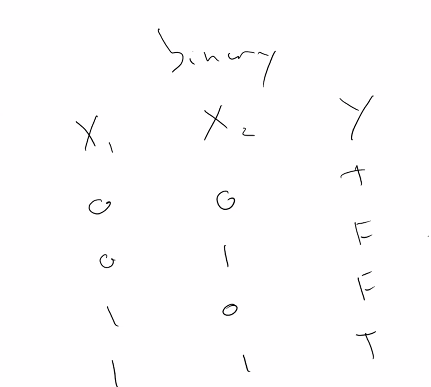 binary
X₁ X₂ Y
0 0 T
0 1 F
1 0 F
1 1 T